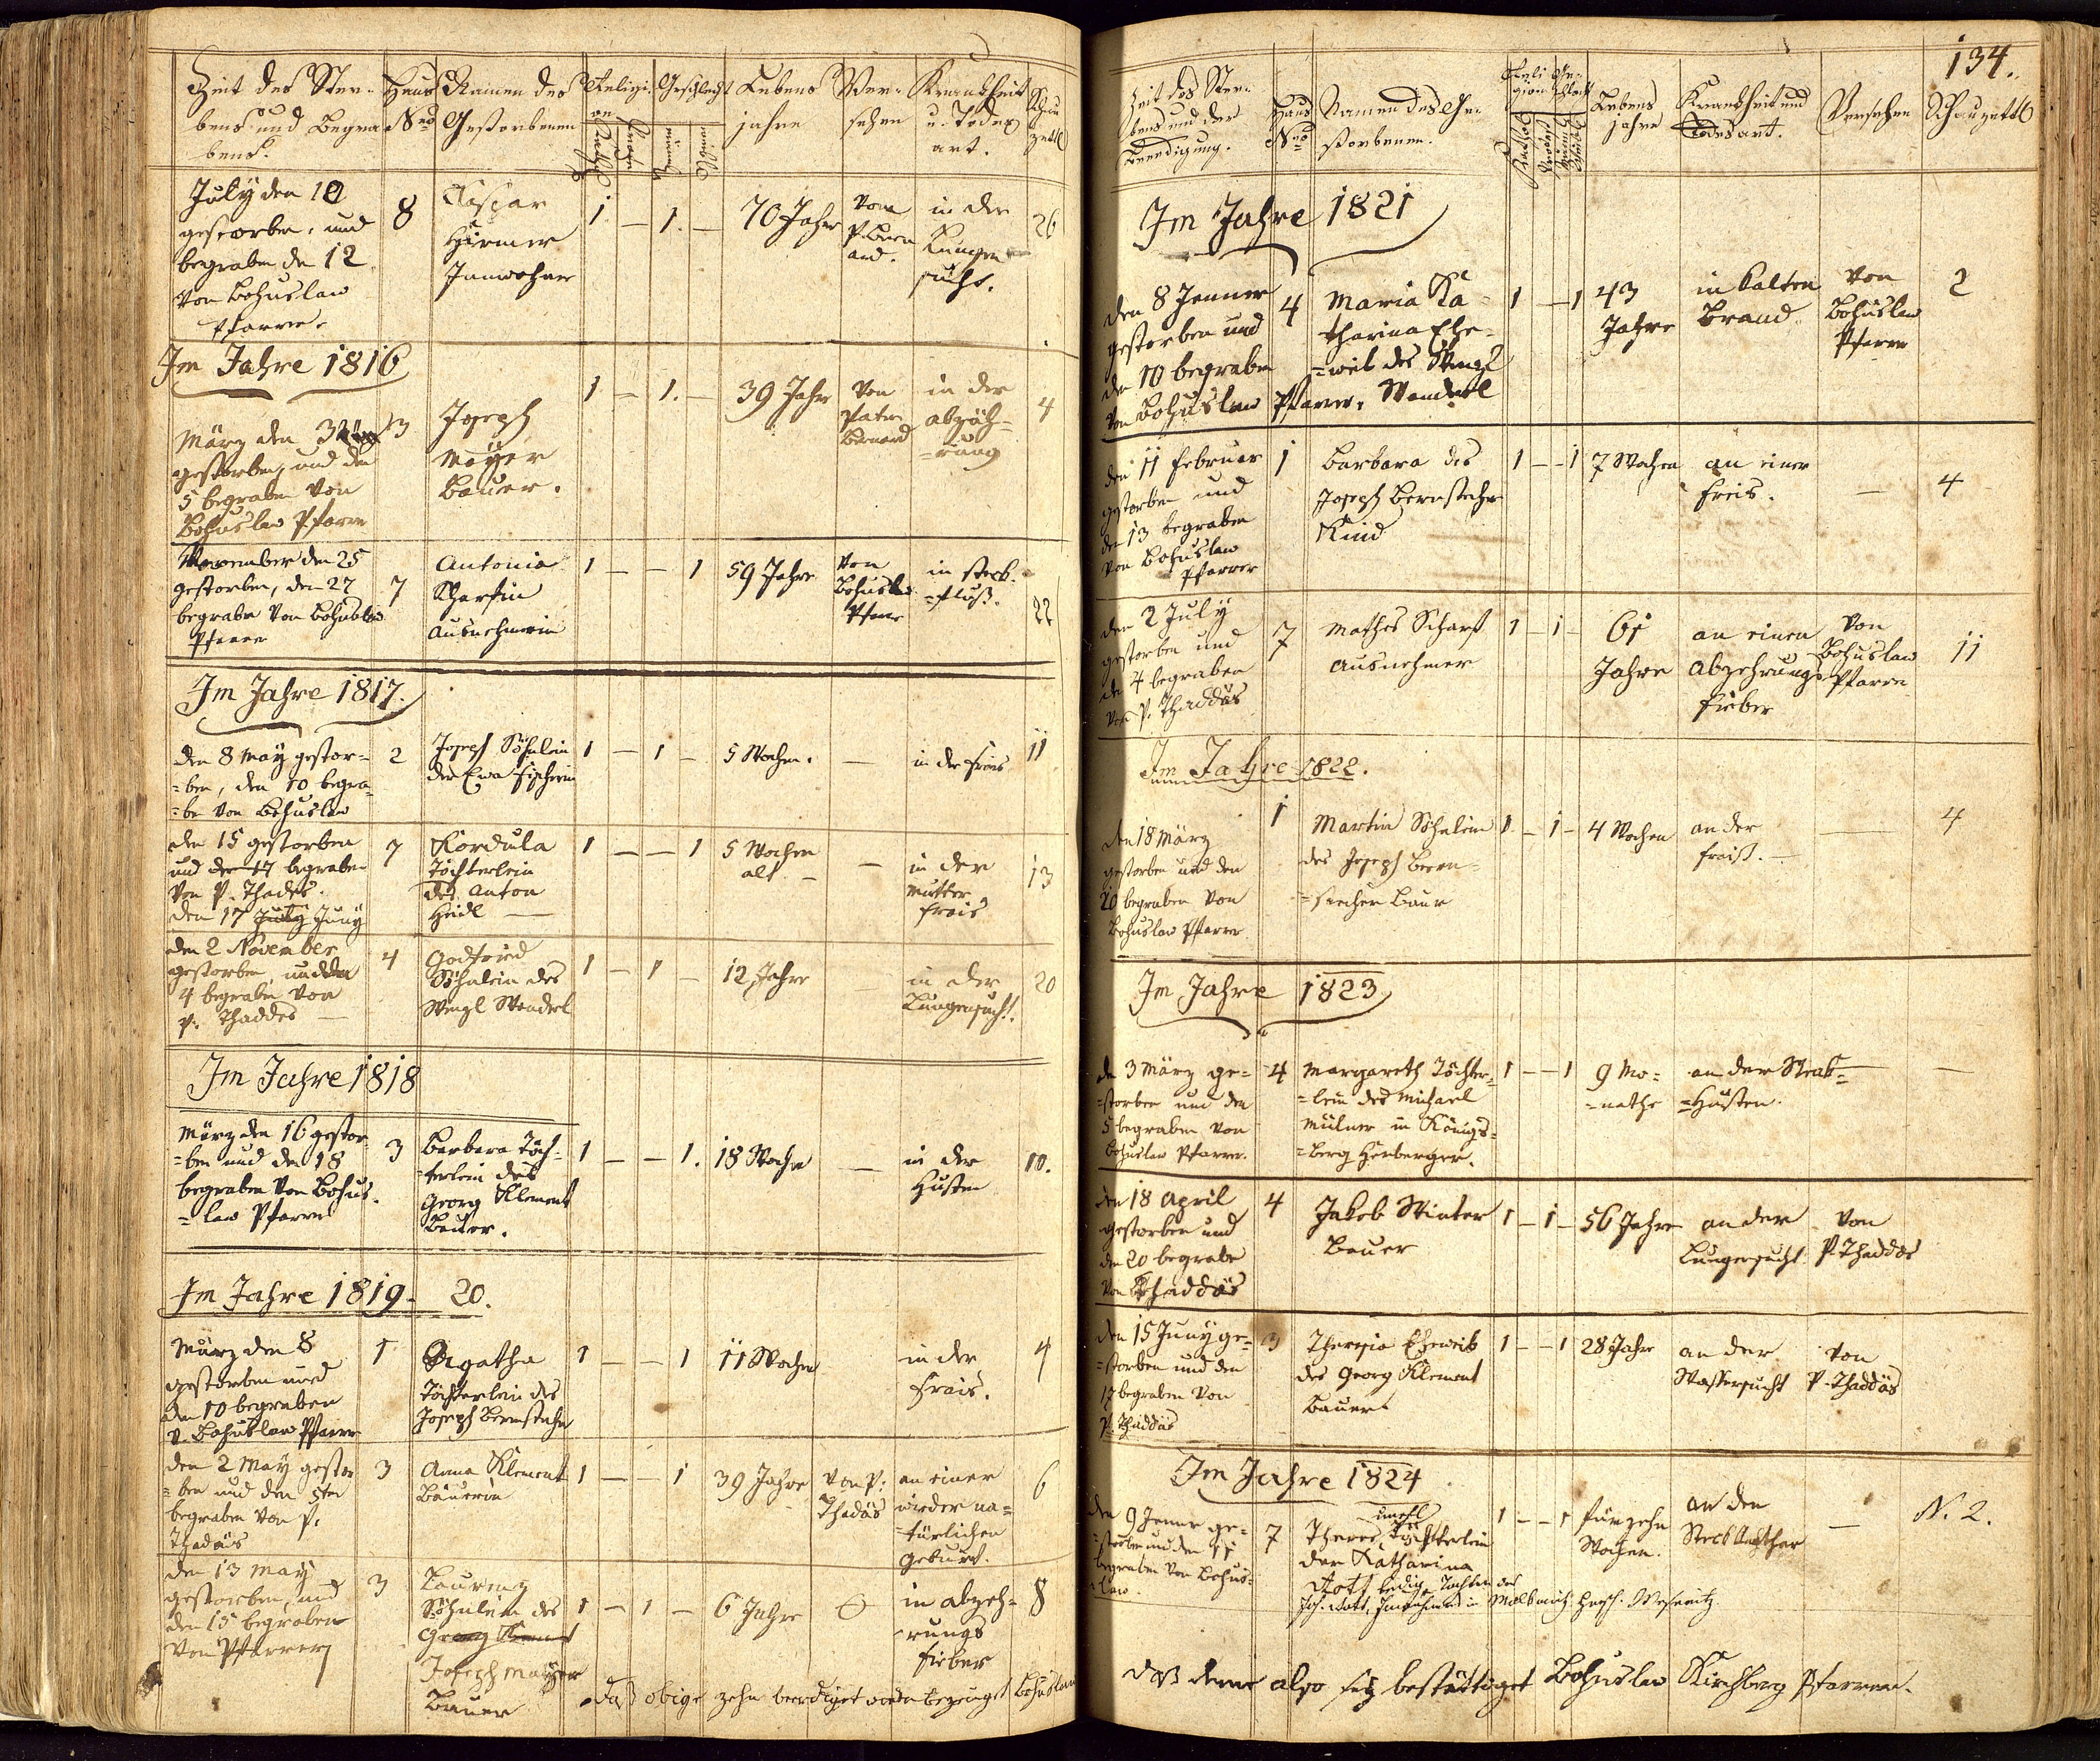 Zeit des Ster-
bens und Begra
bens.
Haus
Nro
Namen des
Gestorbenen
Religi-
on
Kathol
Geschlecht
männl
weibl
Lebens
jahre
Ver-
sehen
Krankheit
u. Todes
art.
Schau
zettl
July den 10
gestorben, und
begraben den 12
von Bohuslaw
Pfarrer.
8
Caspar
Hirmer
Innwohner
1 — 1. —
70 Jahr
vom
P. Bern
ard.
in der
Lungen
sucht.
26
Im Jahre 1816
März den 3
gestorben, und den
5 begraben von
Bohuslaw Pfarrer
3
Joseph
Mayer
Bauer.
1 — 1. —
39 Jahr
von
Pater
Bernard
in der
Abzöh-
rung
4
November den 25
gestorben, den 27
begraben von Bohuslaw
Pfarrer
7
Antonia
Scharfin
Ausnehmerin
1 — — 1
59 Jahre
von
Bohuslaw
Pfarrer
in steck-
=fluß.
22
Im Jahre 1817.
den 8 May gestor=
=ben, den 10 begra=
=ben von Bohuslaw
2
Joseph Söhnlein
der Eva Fischerin
1 — 1 —
5 Wochen.
—
in der Frais
11
den 15 gestorben
und den 17 begraben
von P. Thades.
den 17 July Juny
7
Kordula
Töchterlein
des Anton
Heidl —
1 — — 1
5 Wochen
alt —
—
in der
Mutter
Frais
13
den 2 November
gestorben, und den
4 begraben von
P. Thaddes —
4
Godfried
Söhnlein des
Wenzl Wenderl
1 — 1 —
12 Jahre
—
in der
Lungensucht.
20
Im Jahre 1818
März den 16 gestor
=ben und den 18
begraben von Bohus-
=law Pfarrer
3
Barbara Töch-
=terlein des
Georg Klement
Bauer.
1 — — 1.
18 Wochen
—
in der
Husten
10.
Im Jahre 1819- 20.
März den 8
gestorben und
den 10 begraben
v. Bohuslaw Pfarrer
1
Agatha
Töchterlein des
Joseph Bernstecher
1 — — 1
11 Wochen
in der
Frais.
4
den 2 May gestor
=ben und den 5ten
begraben von P.
Thadäus
3
Anna Klement
Bäuerin
1 — — 1
39 Jahre
von P.
Thadäs
an einer
wieder na=
=türlichen
Geburt.
6
den 13 May
gestorben, und
den 15 begraben
von Pfarrer
3
Laurenz
Söhnlein des
Georg Klement
Joseph Mayer
Bauer
1 — 1 —
6 Jahre
in Abzeh=
=rungs
Fieber
8
daß obige zehn beerdiget worden bezeuget Bohuslaw
134.
Zeit des Ster-
bens und der
Beerdigung.
Haus
Nro
Namen des Ge-
storbenen.
Reli
gion
Ge-
schlecht
Lebens
jahre
Krankheit und
Todesart.
Versehen
Schauzettl
Im Jahre 1821
den 8 Jenner
gestorben und
den 10 begraben
von Bohuslaw Pfarrer,
4
Maria Ka=
tharina Ehe-
=weib des Wenzl
Wenderl
1 — — 1
43
Jahre
in kalten
Brand.
von
Bohuslaw
Pfarrer
2
den 11 Februar
gestorben und
den 13 begraben
von Bohuslaw
Pfarrer
1
Barbara des
Joseph Bernstecher
Kind
1 — — 1
7 Wochen
an einer
Freis.
—
4
den 2 July
gestorben und
den 4 begraben
von P. Thaddäs
7
Mathes Scharf
Ausnehmer
1 — 1 —
61
Jahre
an einen
Abzehrungs
Fieber
von
Bohuslaw
Pfarrer
11
Im Jahre 1822.
den 18 März
gestorben und den
20 begraben von
Bohuslaw Pfarrer
1
Martin Söhnlein
des Joseph Bern-
=stecher Baur
1 — 1 —
4 Wochen
an der
Fraiß. —
—
4
Im Jahre 1823
den 3 März ge=
=storben und den
5 begraben von
Bohuslaw Pfarrer.
4
Margareth Töchter-
=lein des Michael
Müllner in Königs=
=berg Herberger.
1 — — 1
9 Mo=
=nathe
an der Steck=
=Husten.
—
den 18 April
gestorben und
den 20 begraben
von Thaddäs
4
Jakob Winter
Bauer
1 — 1 —
56 Jahre
an der
Lungensucht
von
P. Thaddäs
den 15 Juny ge=
=storben und den
17 begraben von
P. Thaddäs
3
Theresia Eheweib
des Georg Klement
Bauer
1 — — 1
28 Jahr
an der
Wassersucht
von
P. Thaddäs
Im Jahre 1824
den 9 Jenner ge=
=storben und den 11
begraben von Bohus=
=law.
7
unehl
Theres Töchterlein
der Katharina
Dott, ledige Tochter des
Joh. Dott, Innwohner in Herrsch. Weseritz.
1 — — 1
fünfzehn
Wochen.
an den
Steckkathar
—
N. 2.
daß deme also sey bestättiget Bohuslaw Kirchberg Pfarrer.